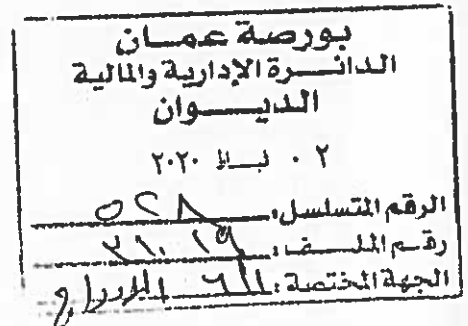 بورصة عمان
الدائرة الإدارية والمالية
الديوان
٠٢ شباط ٢٠٢٠
الرقم المتسلسل: ٥٢٨
رقم الملف:
الجهة المختصة: الإدراج